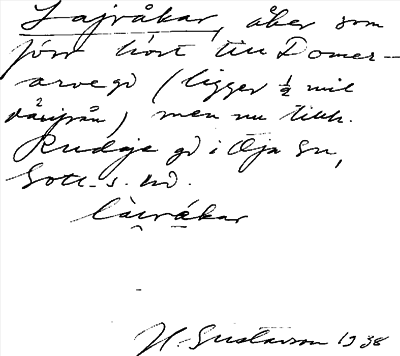 Lajråkar, åker som
förr hört till Domer-
arve gd (ligger ½ mil
därifrån) men nu tillh.
Rudvje gd i Öja sn,
Gotl. s. hd.
làirákar
H Gustavson 1938